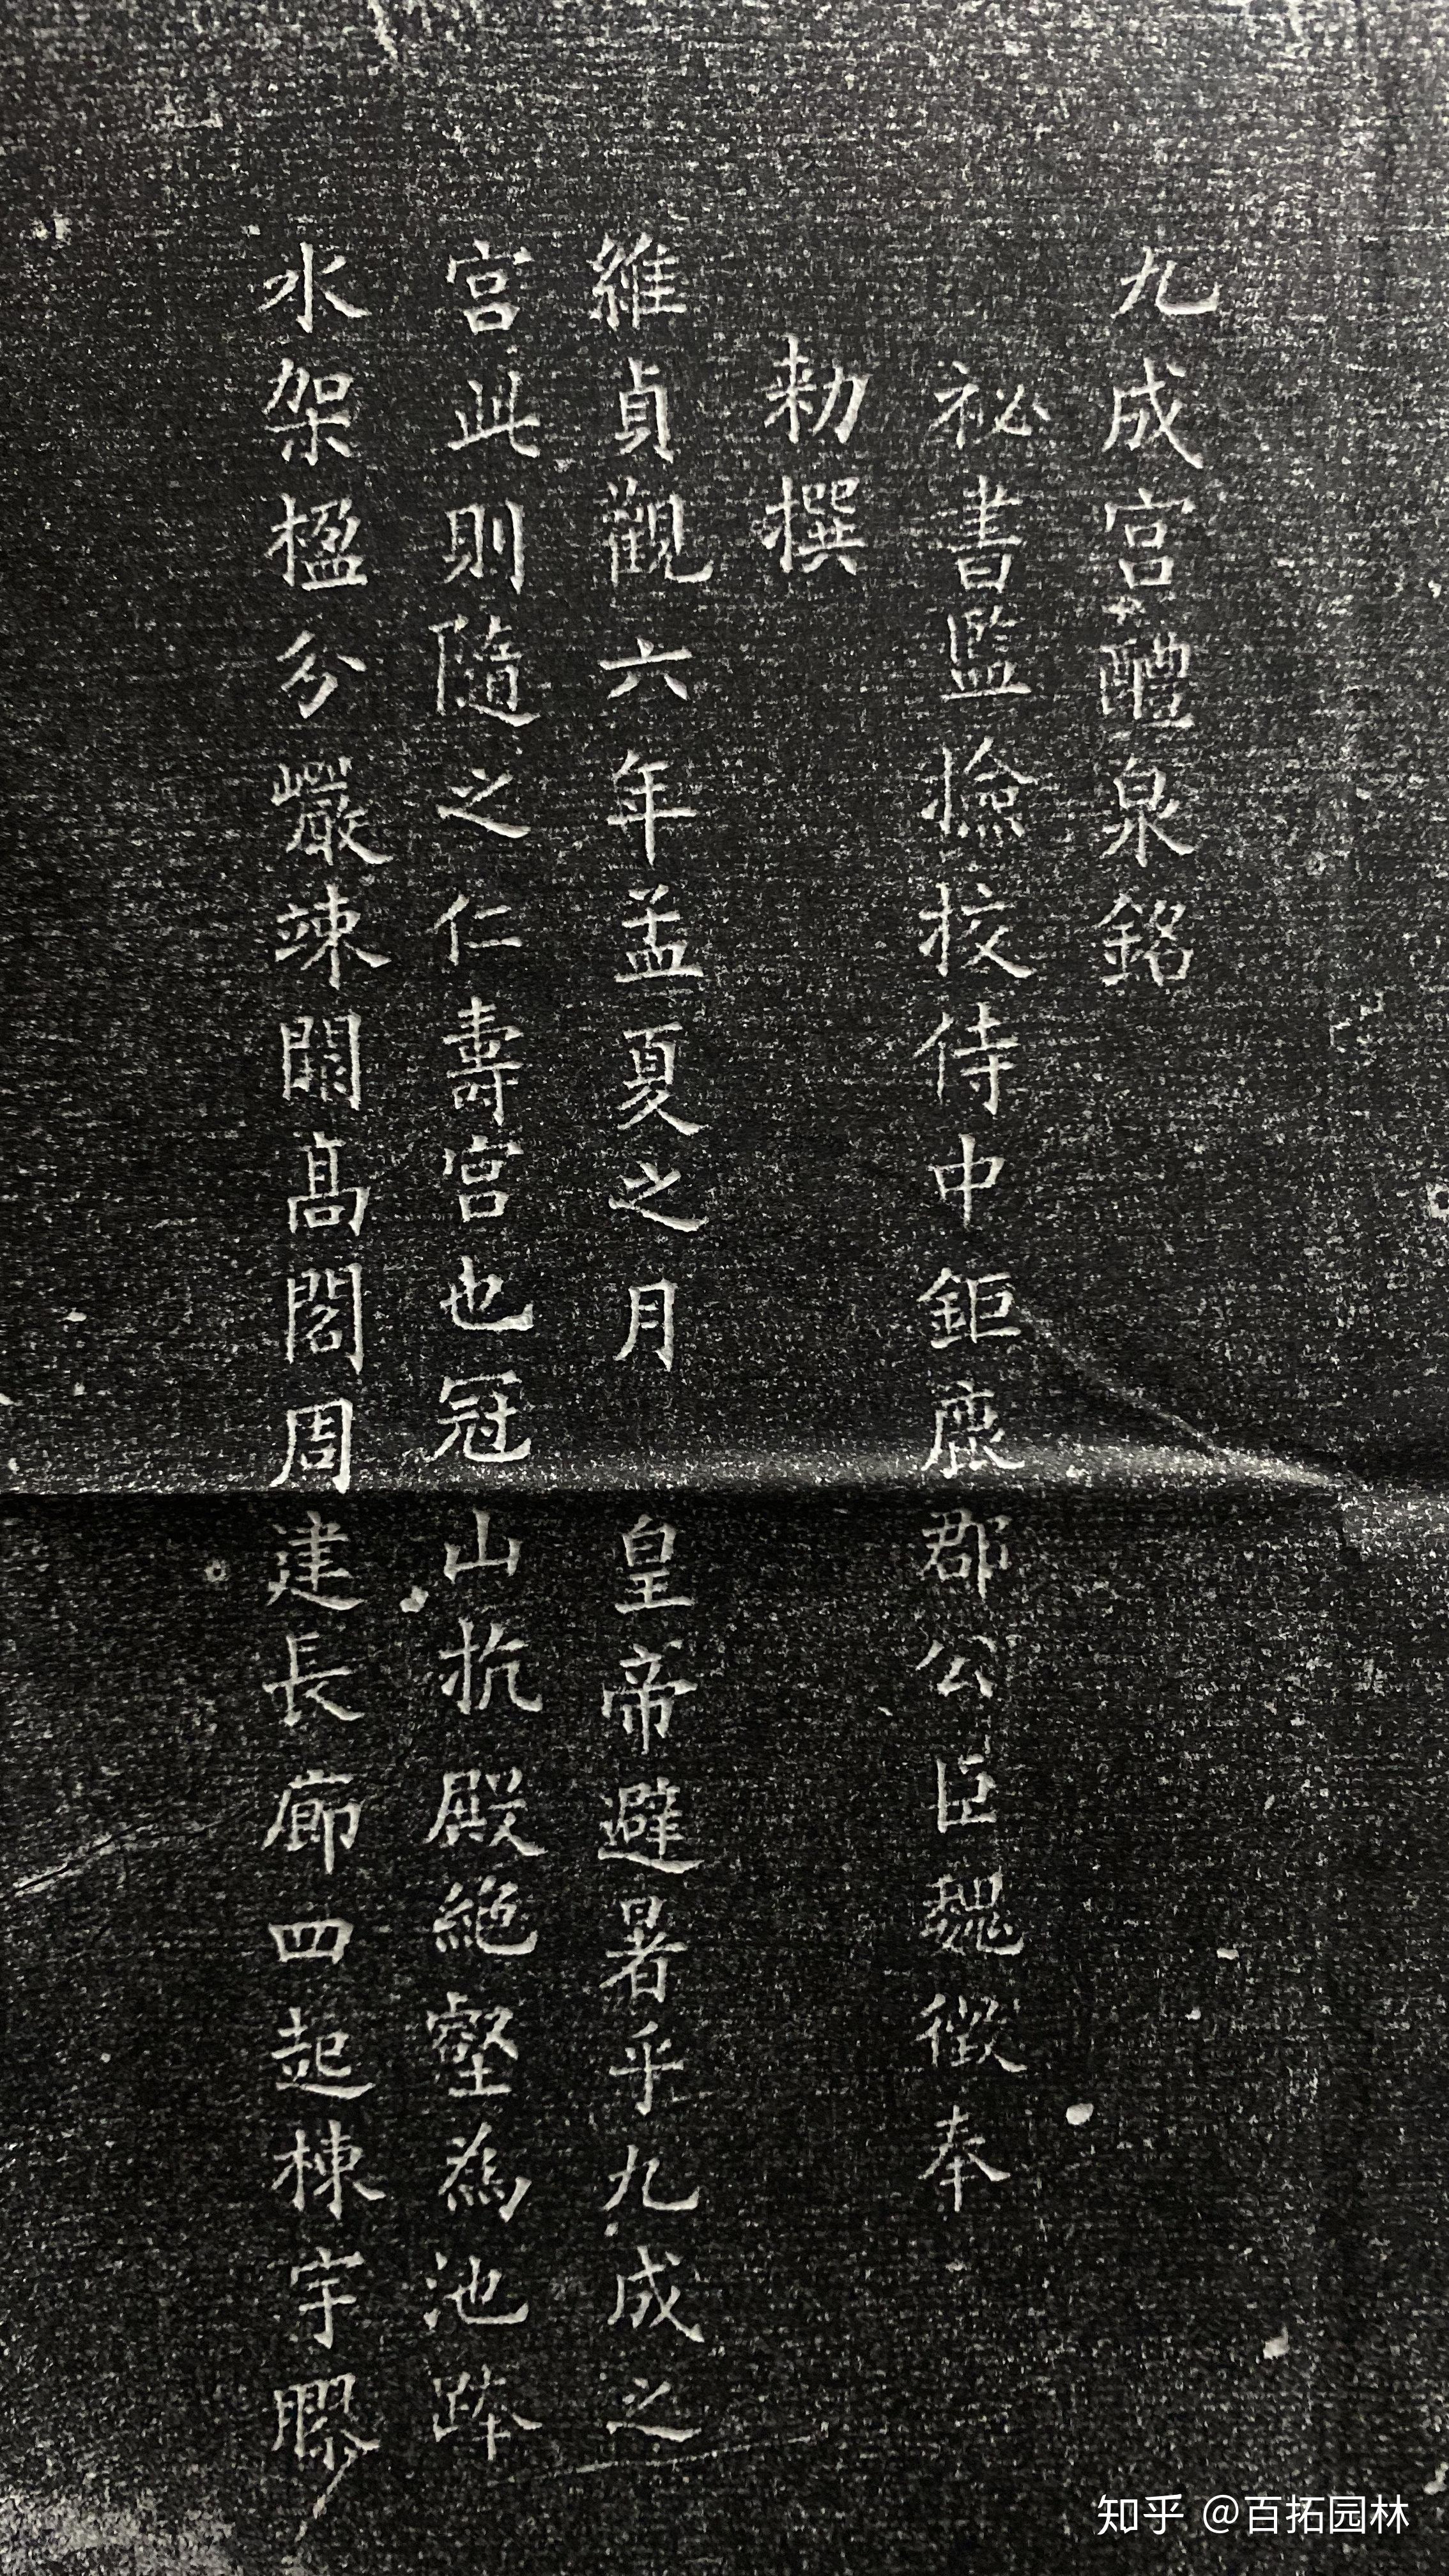 九成宫醴泉銘
祕書監撿挍侍中鉅鹿郡公臣魏徵奉
勑撰
維貞觀六年孟夏之月皇帝避暑乎九成之
宫此則隨之仁壽宫也冠山抗殿絶壑為池跨
水架楹分巖竦闕髙閣周建長廊四起棟宇膠
知乎 @百拓园林